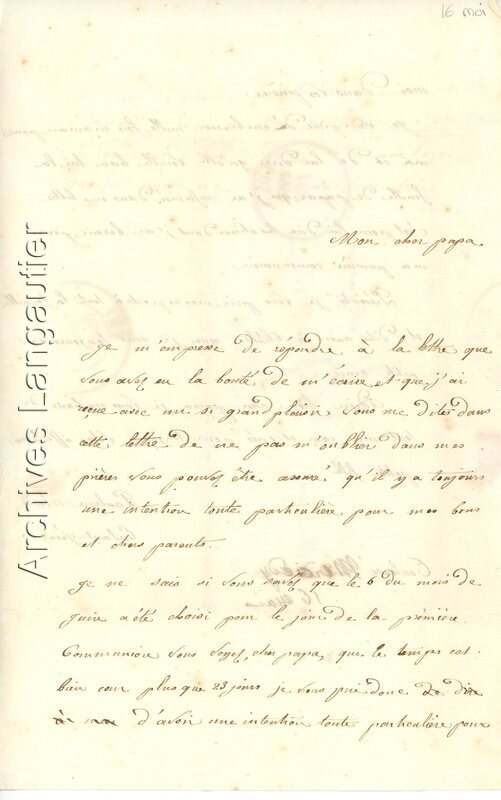 16 mai
Mon cher papa
Je m'empresse de répondre à la lettre que
vous avez eu la bonté de m'écrire et que j'ai
reçue avec un si grand plaisir vous me dites dans
cette lettre de ne pas m'oublier dans mes
prières vous pouvez être assuré qu'il y a toujours
une intention toute particulière pour mes bons
et chers parents.
Je ne sais si vous savez que le 6 du mois de
juin a été choisi pour le jour de la première
Communion vous voyez, cher papa, que le temps est
bien cour plus que 23 jours je vous prie donc de
d'avoir une intention toute particulière pour
Archives Langautier